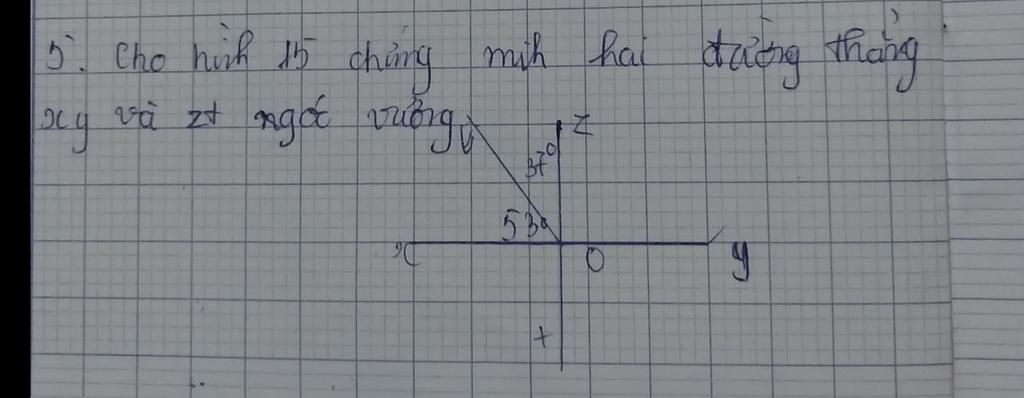 5. Cho hình 15 chứng mih hai đường thẳng
xy và zt ngóc vuông
v z
37°
53°
x O y
t